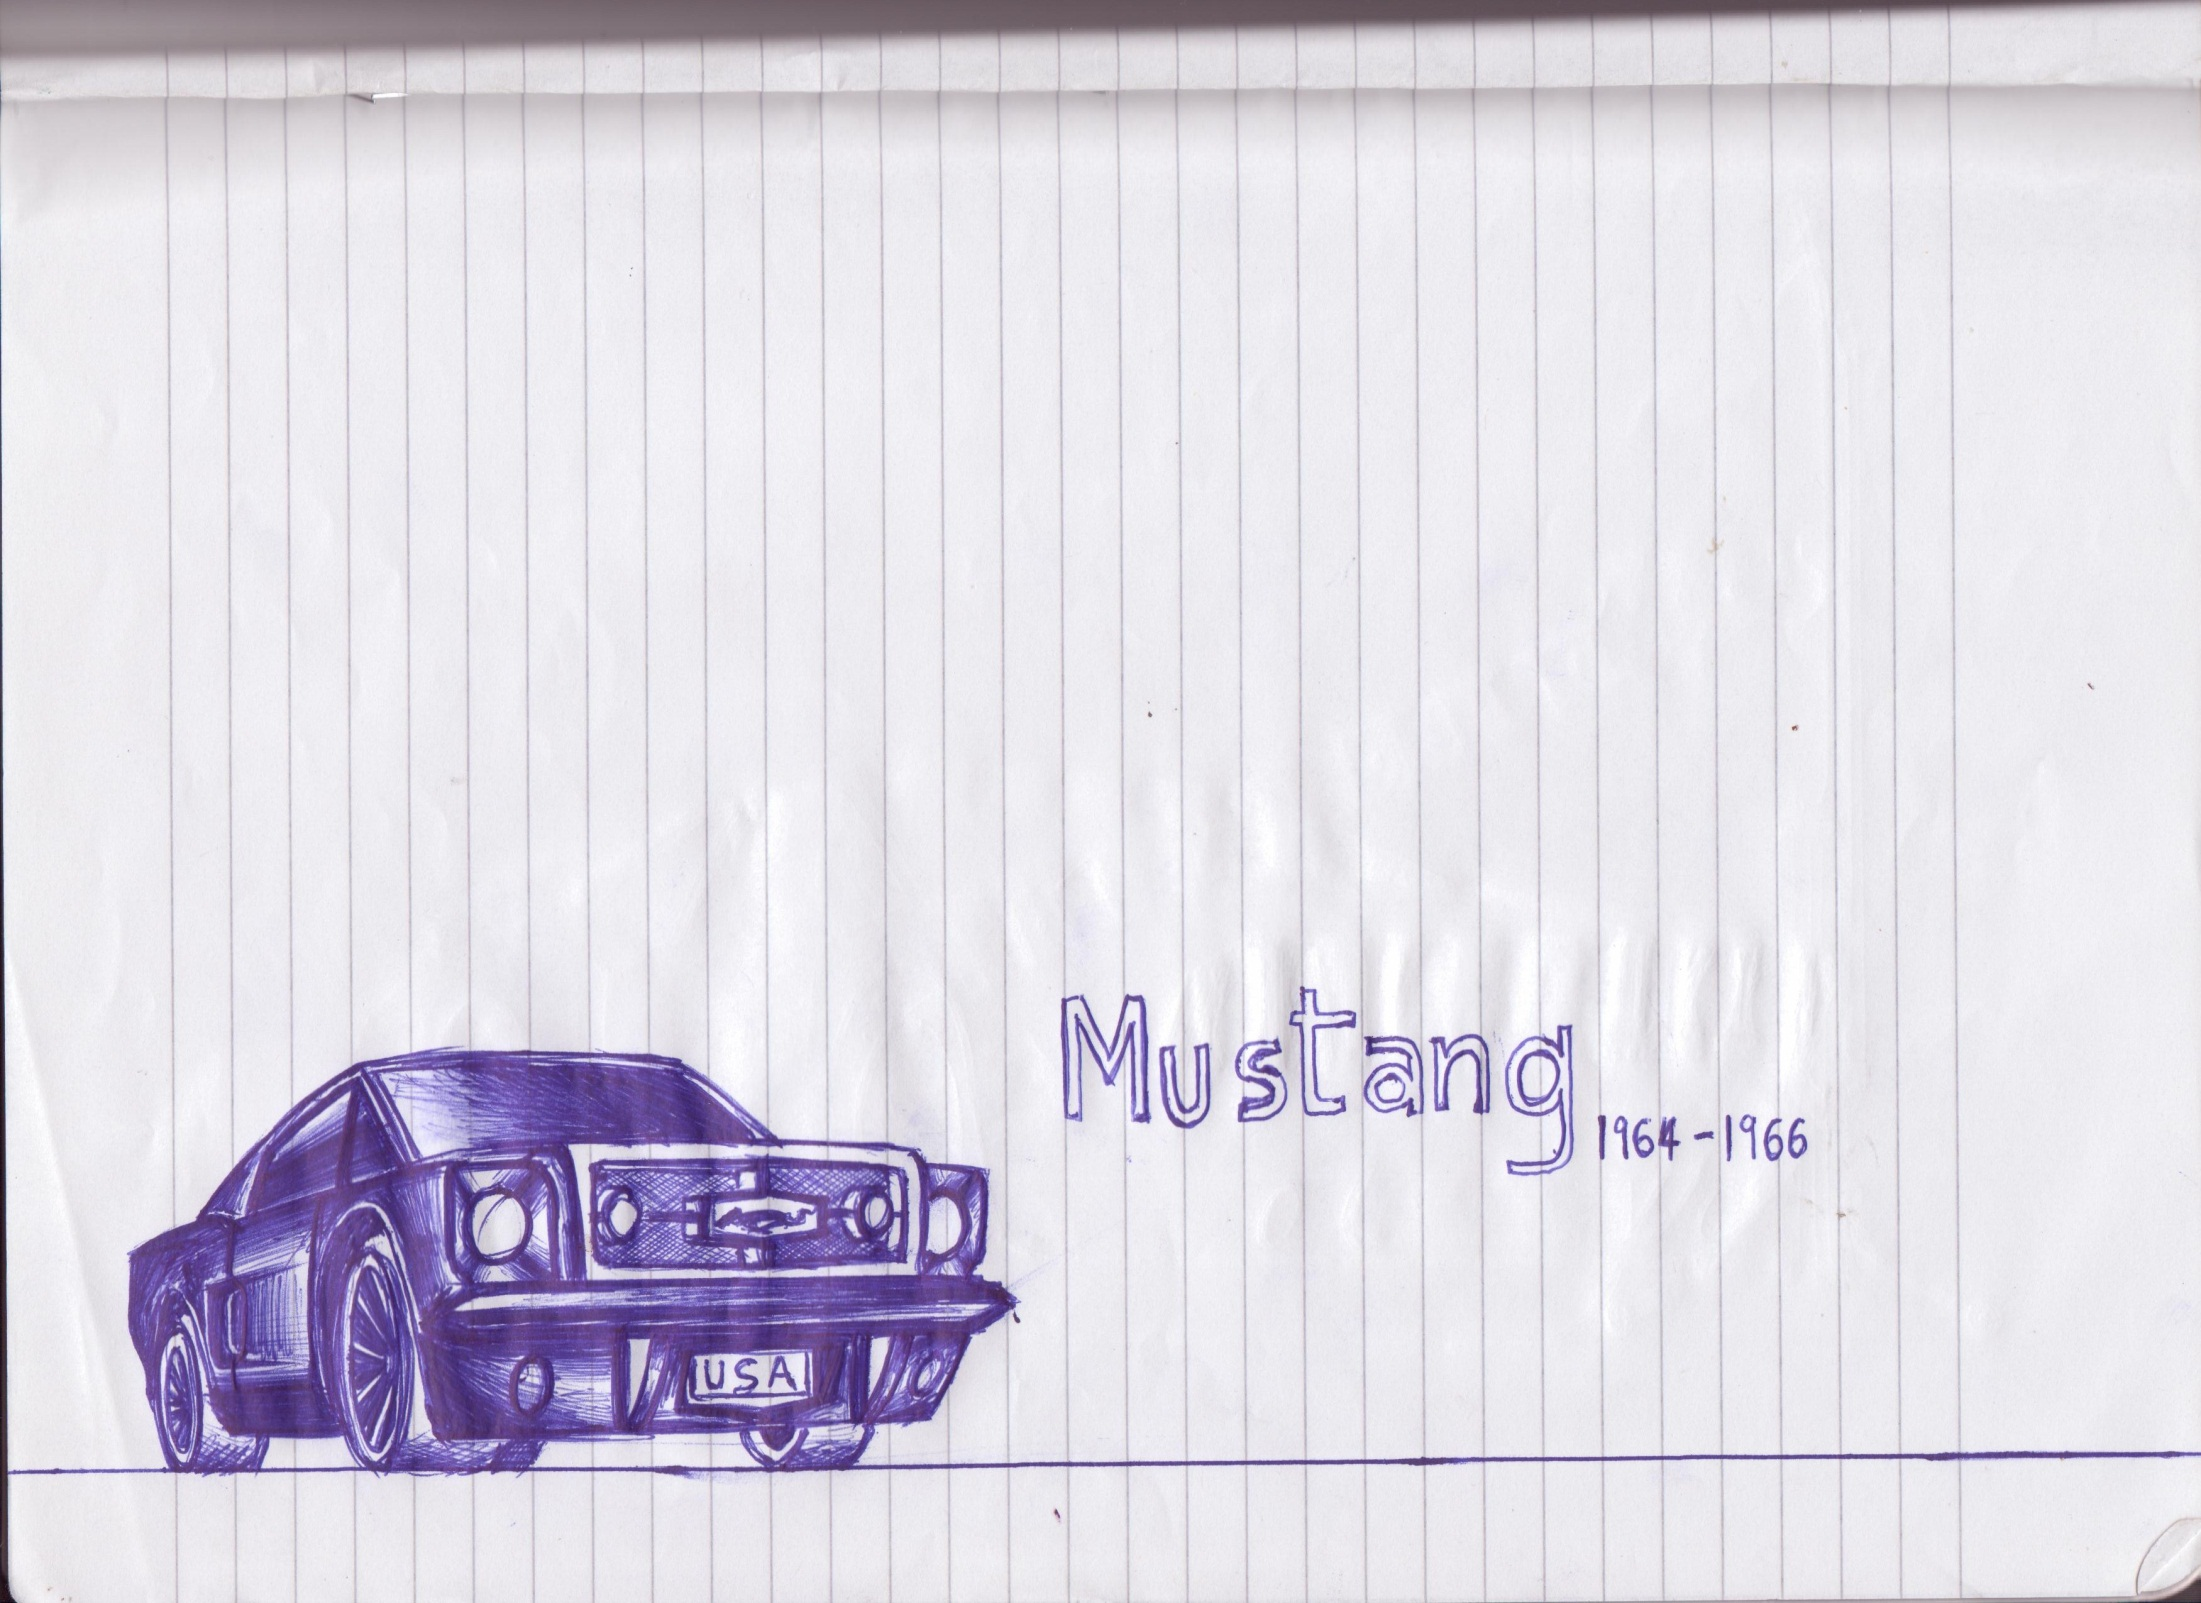 Mustang
1964-1966
USA